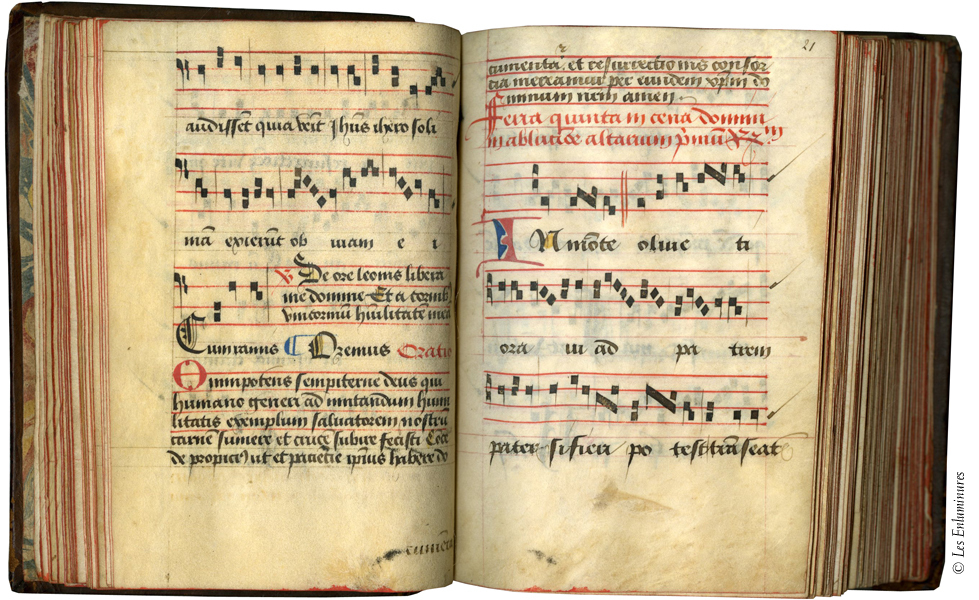 audisset quia venit Jhus ihero soli
mā exierūt ob uiam e i
De ore leonis libera
me domine Et a cornibꝫ
vnicornuū hūilitatē meā
Cum ramis ¶ Oremus Oratio
Omnipotens sempiterne deus qui
humano generi ad imitandum humi
litatis exemplum saluatorem nostrū
carnē sumere et crucē subire fecisti Cōce
de propicꝰ ut et paciētie ipsius habere do
cumēta
21
cumenta et resurrectionis consor
cia mereamur per eundem xpm do
minum nrm amen
Feria quinta in cena domini
in ablucōe altarium pͥmū
IN mōte oliue ti
ora ui ad pa trem
pater si fieri po test trāseat
© Les Enluminures